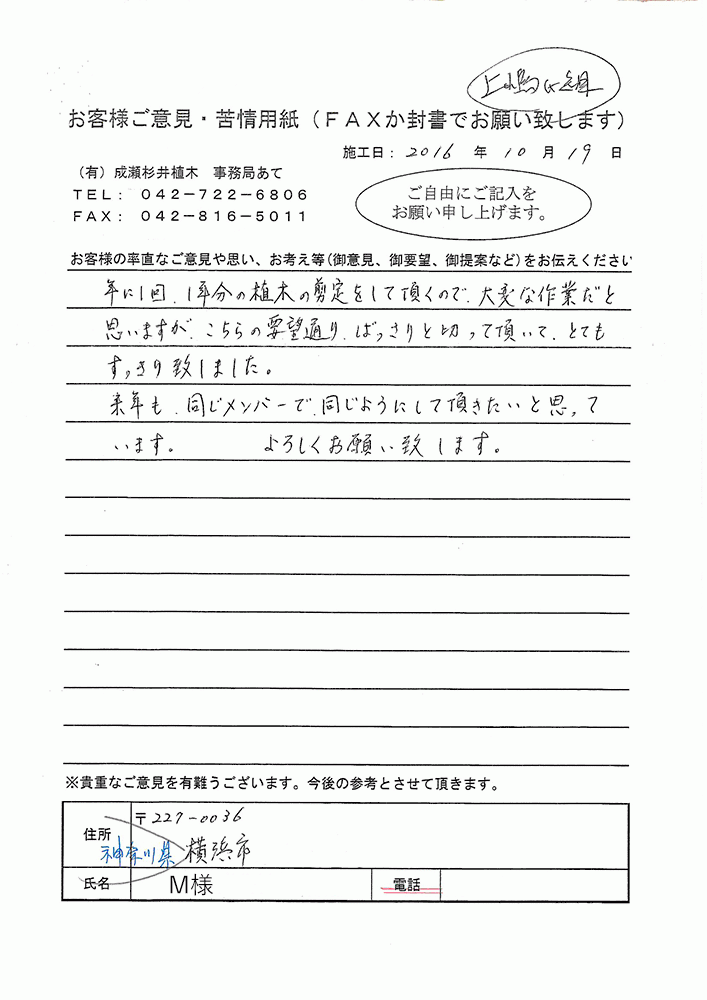 お客様ご意見・苦情用紙（ＦＡＸか封書でお願い致します）
施工日： 2016 年 10 月 19 日
（有）成瀬杉井植木　事務局あて
ＴＥＬ： ０４２－７２２－６８０６
ＦＡＸ： ０４２－８１６－５０１１
ご自由にご記入を
お願い申し上げます。
お客様の率直なご意見や思い、お考え等（御意見、御要望、御提案など）をお伝えください
年に1回、1年分の植木の剪定をして頂くので、大変な作業だと
思いますが、こちらの要望通り、ばっさりと切って頂いて、とても
すっきり致しました。
来年も、同じメンバーで、同じようにして頂きたいと思って
います。　　　よろしくお願い致します。
※貴重なご意見を有難うございます。今後の参考とさせて頂きます。
住所 〒227-0036
神奈川県 横浜市
氏名 M様 電話